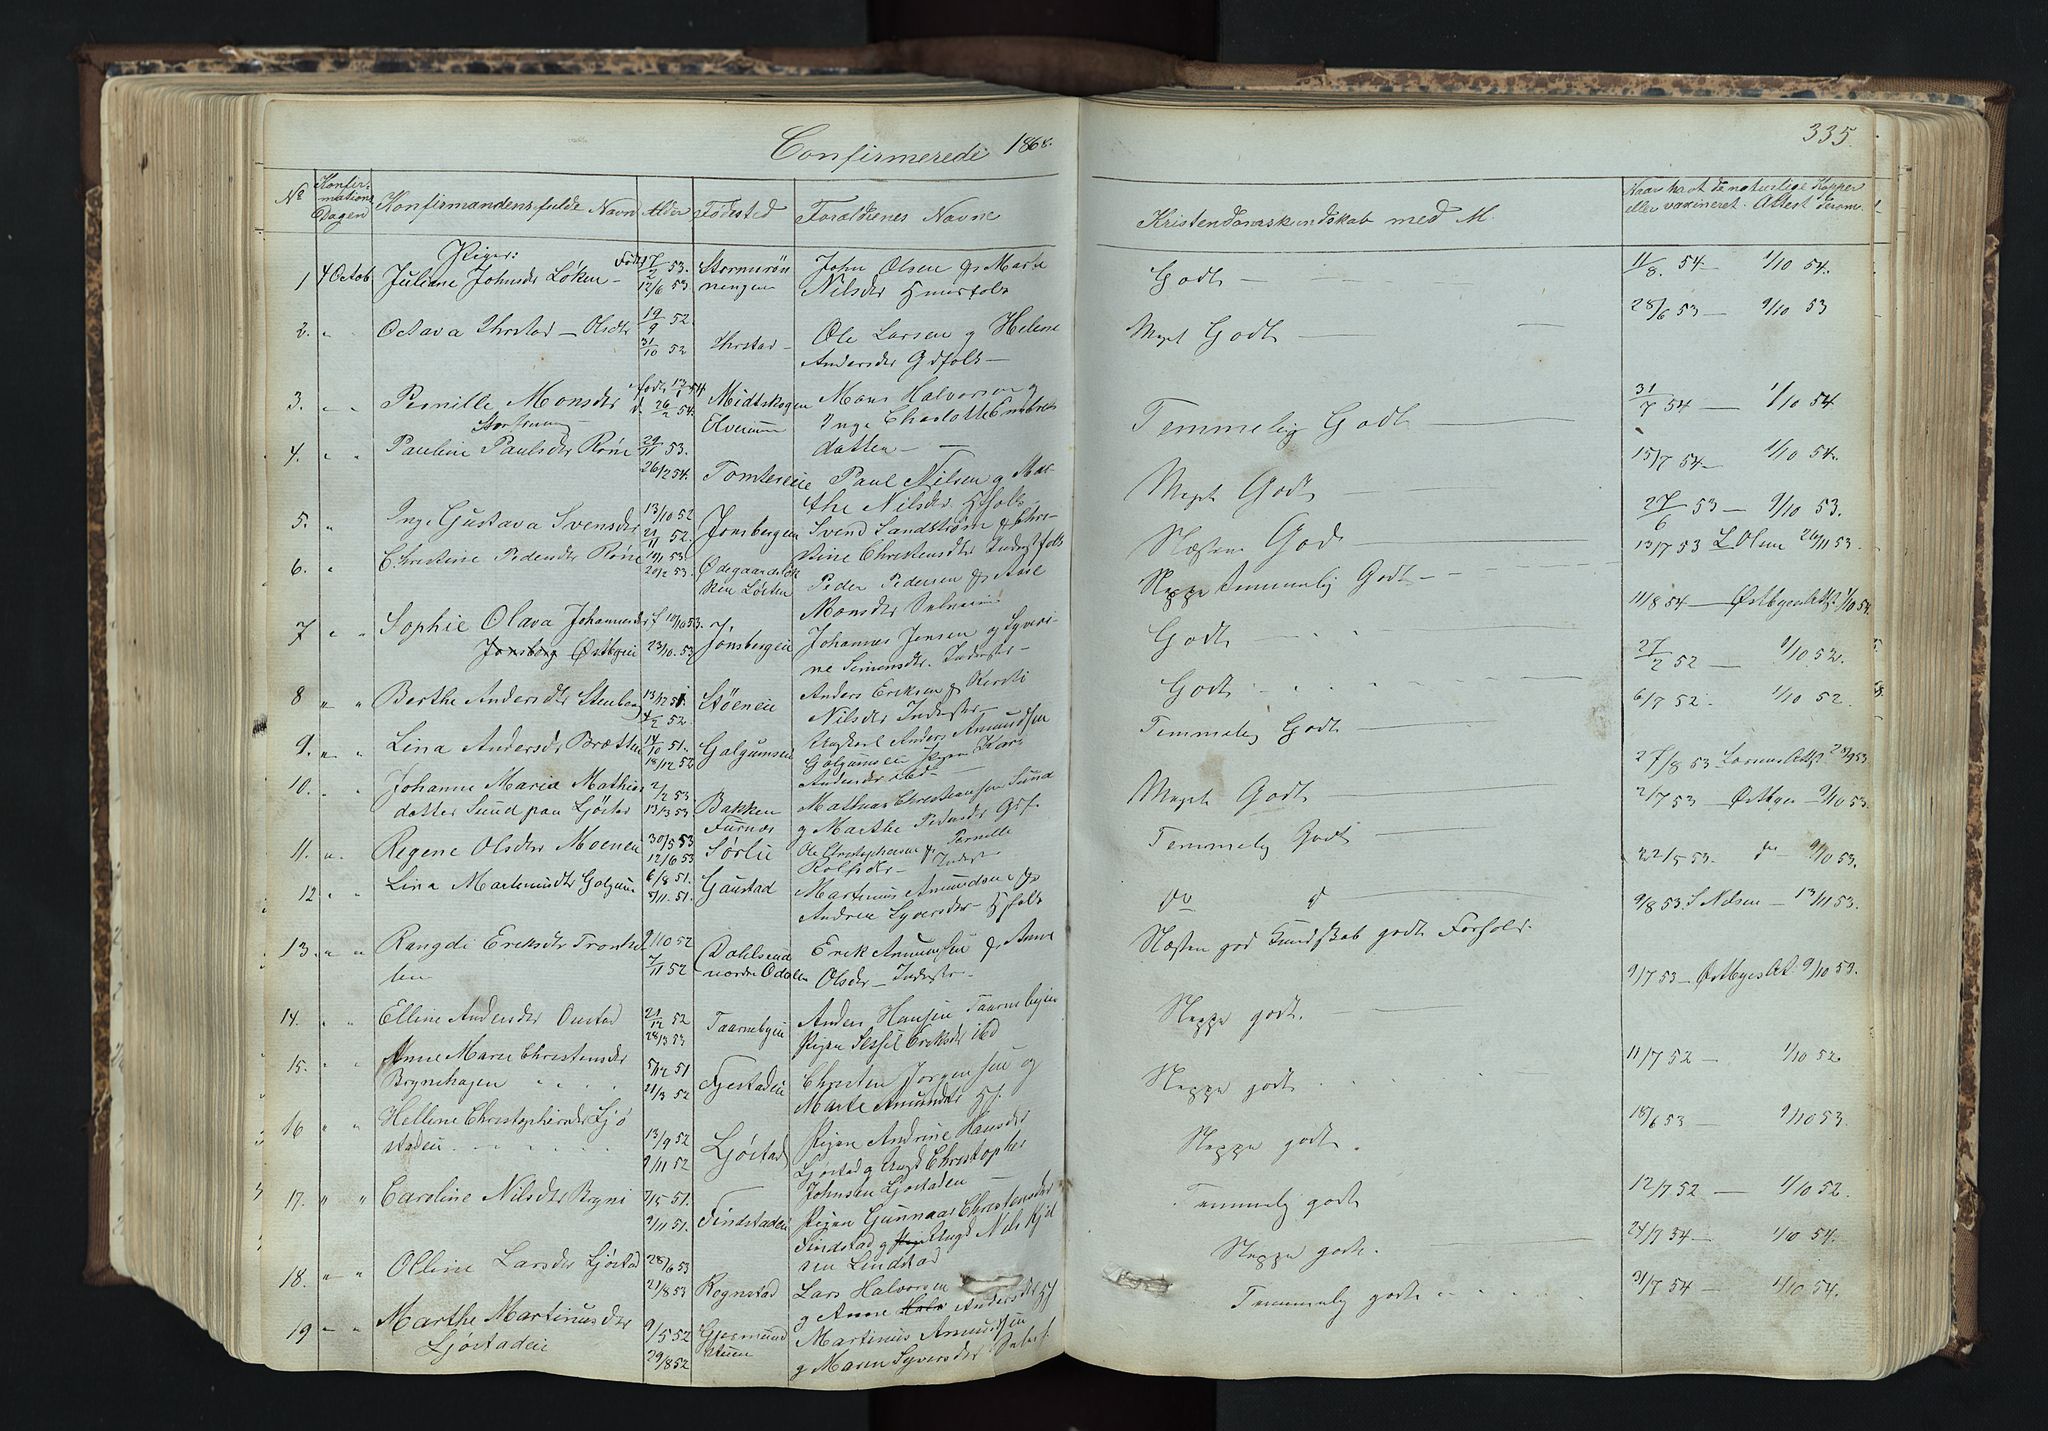 Confirmerede 1868.
335.
No
Konfirmations Dagen
Konfirmandens fulde Navn
Alder
Fødested
Forældrenes Navne
Kristendomskundskab med M.
Naar havt de naturlige Kopper
eller vaxineret. Attest derom.
Piger:
1 4 Octob Juliane Johnsdr Løken Født 17/2 53. 12/6 53
John Olsen & Marte
Nilsdr Husfolk
Godt 11/8. 54 — 1/10 54.
2. " Octava Thrstad — Olsdtr 19/9 52. 31/10 52 Thrstad —
Ole Larsen g Helene
Andersdr Gdfolk —
Meget Godt 28/6 53 — 9/10 53
3. " " Pernille Monsdr født 12/1 54 d. 26/2 54. Midtskogen
Elverum
Mons Halvorsen g
Inge Charlotte Embrets
datter —
Temmelig Godt 31/7 54 — 1/10 54
4. " " Pauline Paulsdr Røne 29/11 53. 26/2 54. Tomtereie
Paul Nilsen g Mar-
the Nilsdr Hfolk
Meget Godt 15/7 54 — 1/10 54.
5. " Inge Gustava Svensdr 13/10 52 21/11 52. Jonsbergeie
Svend Sandstrøm & Chri-
stine Christensdtr Inderstfolk
Næsten Godt 27/6 53 — 9/10 53.
6. " Christine Pedersdr Røne 19/1 53 20/2 53. Ødegaardsløk
ken Løiten
Peder Pedersen & Aase
Monsdr
Neppe temmelig Godt 13/7 53 L. Olsen 26/11 53.
7 " " Sophie Olava Johannesdr f 10/10 53. Jønsbergeie
Østbyeie 23/10. 53
Johannes Jensen og Syveri-
ne Simensdr. Inderster —
Godt 11/8 54 — Østbyes Att. 1/10 54.
8 " " Berthe Andersdtr Stenberg 13/12 51 4/2 52. Støeneie
Anders Eriksen & Kersti
Nilsdr Inderster —
Godt 27/2 52 — 9/10 52.
9. " " Lina Andersdr Brætten 14/10 51. 18/1 52 Galgumseie
Ungkarl Anders Amundsen
Galgumseie Pigen Kari
Andersdr ibd —
Temmelig Godt 6/7 52. 1/10 52.
10. " Johanne Maria Mathis
datter Sund paa Ljøstad 2/2 53 13/3 53 Bakken
Furnæs
Mathias Christiansen Sund
g Marthe Pedersdr Gf.
Meget Godt 27/8 53
11. " Regene Olsdr Moeneie 30/5 53 12/6 53 Sørlie
Ole Christophersen & Pernille
Rolfsdr — Inderst
Temmelig Godt 2/7 53 — Østbye — 9/10 53.
12 " Lina Martinusdtr Galgum 6/8 51. 9/11. 51. Gaustad
Martinus Amundsen &
Andrea Syversdr — Hfolk
do do 22/5 53. do 9/10 53.
13. " " Rangdi Eriksdtr Tronhus
lien 2/10 52 7/11 52 Dahlseid
nordre Odalen
Erik Amundsen & Anne
Olsdr — Inderster —
Næsten god Kundskab godt Forhold. 9/8 53 S. Nilsen — 13/11 53.
14. " " Elline Andersdtr Onstad 21/12 52 28/3 53 Taarnebyeie
Anders Hansen Taarnebyeie
Pigen Sessel Eriksdr ibd
Neppe godt. 9/7 53 — Østbyes At. 9/10 53.
15. " " Anne Marie Christensdr
Brynehagen 5/12 51 21/3 52 Fjestadeie
Christen Jørgensen og
Marte Amundsdtr Hf.
Neppe godt 11/7 52 — 1/10 52.
16 " " Hellene Christophersdr Ljø
stadeie 13/9 52 9/11 52 Ljøstad
Pigen Andrine Hansdr
Ljøstad g Ungk Christopher
Johnsen Ljøstadeie —
Neppe godt. 18/6 53 — 9/10 53.
17. " " Caroline Nilsdtr Bryni 7/5 51. 9/11 51. Findstadeie
Pigen Gunnar Christensdr
Findstad g Ungk Nils Kjel
sen Lindstad
Temmelig godt 12/7 52 — 1/10 52.
18. " " Olline Larsdr Ljøstad 28/6 53 21/8 53 Rognstad
Lars Halvorsen
g Anne Andersdr Hf
Neppe godt. 24/7 54 — 1/10 54.
19 " " Marthe Martinusdr
Ljøstadeie 9/5 52 29/8 52 Gjermund
stuen
Martinus Amundsen
g Maren Syversdr
Temmelig godt 31/7 54 — 1/10 54.